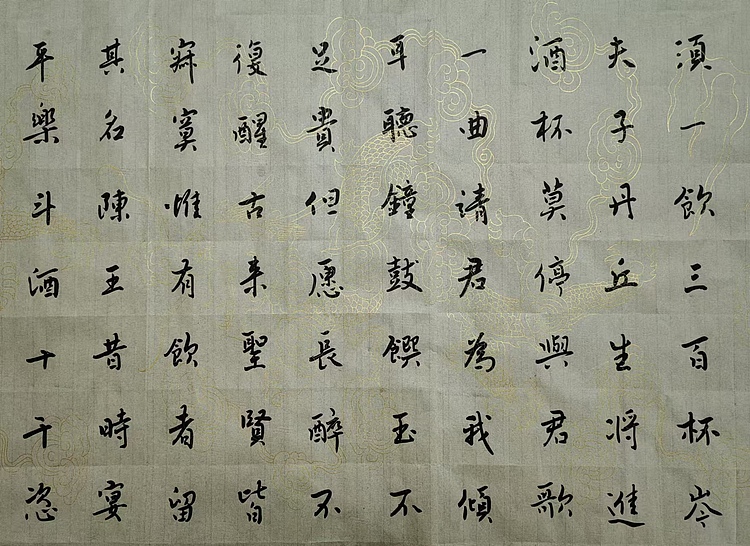 須一飲三百杯岑
夫子丹丘生将進
酒杯莫停與君歌
一曲請君為我傾
耳聽鐘鼓饌玉不
足貴但愿長醉不
復醒古来聖賢皆
寂寞惟有飲者留
其名陳王昔時宴
平樂斗酒十千恣